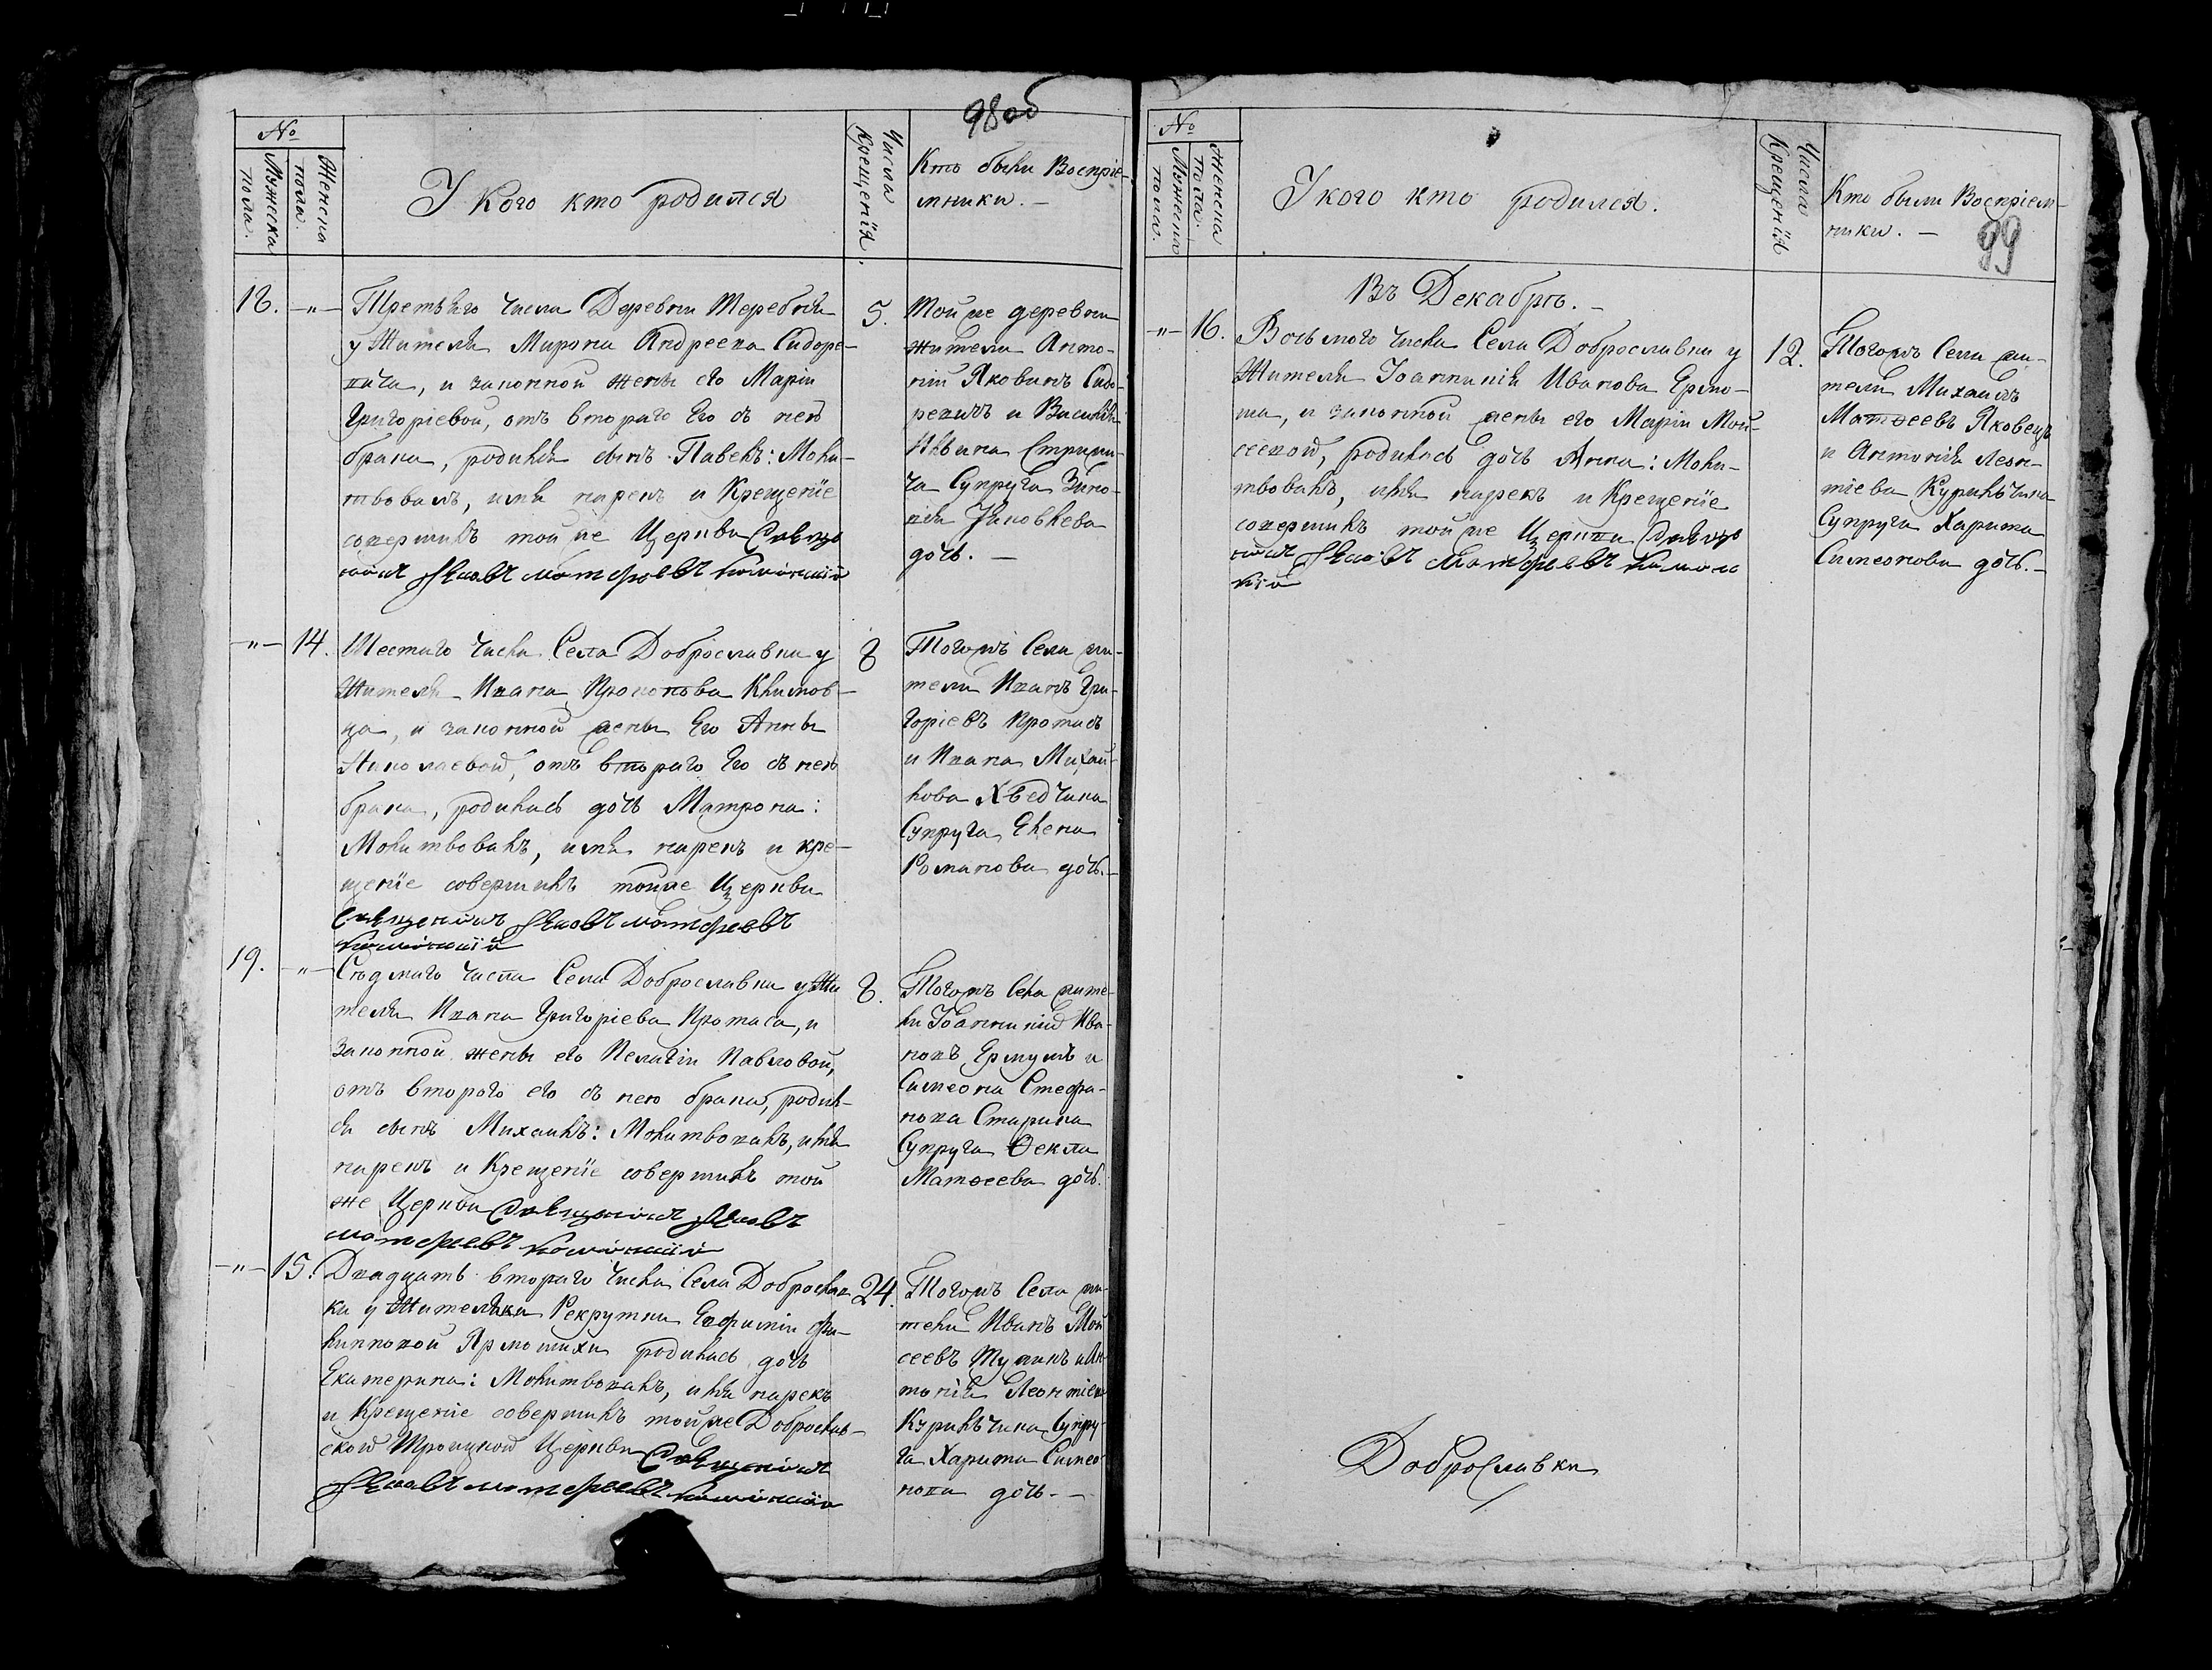 98 об
№
Мужеска
пола.
Женска
пола.
У Кого кто родился
Числа
Крещенія.
Кто были Воспріе-
мники. –
18. –"– Третьяго числа Деревни Теребня
у Жителя Мирона Андреева Сидоре-
вича, и законной жены его Маріи
Григоріевой, отъ втораго Его съ нею
брака, родился сынъ Павелъ: Моли-
твовалъ, имя нарекъ и Крещеніе
совершилъ той же Церкви Священ
никъ Яковъ Матфеевъ
5.
Той же деревни
жители Анто-
ній Яковивъ Сидо-
ревичъ и Василія
Ильина
Супруга Зино-
вія Яковлева
дочь. –
–"– 14. Шестаго числа Села Доброславки у
Жителя Ивана Прокопова Климов-
ца, и законной жены Его Анны
Николаевой, отъ втораго Его съ нею
брака, родилась дочь Матрона:
Молитвовалъ, имя нарекъ и кре-
щеніе совершилъ той же Церкви
Священникъ Яковъ Матфеевъ
8
Тогожъ Села жи-
тели Иванъ Гри-
горіевъ Протасъ
и Ивана Михай-
лова Хведчика
Супруга Елена
Романова дочь. –
19. –"– Седмаго числа Села Доброславки у Жи
теля Ивана Григоріева Протаса, и
законной жены его Пелагіи Павловой,
отъ второго его съ нею брака, родил-
ся сынъ Михаилъ: Молитвовалъ, имя
нарекъ и Крещеніе совершилъ той
же Церкви Священникъ Яковъ
Матфеевъ
8.
Тогожъ Села жите-
ли Іоанникій Ива-
новъ Ермушъ и
Симеона Стефа-
нова Старика
Супруга Ѳекла
Матѳеева дочь.
–"– 15. Двадцать втораго числа Села Доброслав
ки у Жительки Рекрутки Евфиміи Фи-
липповой Ярмошихи родилась дочь
Екатерина: Молитвовалъ, имя нарекъ
и Крещеніе совершилъ той же Доброслав-
ской Троицкой Церкви Священникъ
Яковъ Матфеевъ
24.
Тогожъ Села жи-
тели Иванъ Мои
сеевъ и Ан-
тонія Леонтіева
Курильчика Супру-
га Харита Симео-
нова дочь. –
№
Мужеска
пола.
Женска
пола.
У кого кто родился.
Числа
Крещенія
Кто были Воспріем-
ники. –
99
Въ Декабрѣ. –
–"– 16. Восьмого числа Села Доброславки у
Жителя Іоанникія Иванова Ермо-
ша, и законной жены его Маріи Мой-
сеевой, родилась дочь Анна: Моли-
твовалъ, имя нарекъ и Крещеніе
совершилъ той же Церкви Священ
никъ Яковъ Матфеевъ
12.
Тогожъ Села жи-
тели Михаилъ
Матѳеевъ Яковецъ
и Антонія Леон-
тіева Курильчика
Супруга Харита
Симеонова дочь. –
Доброславки